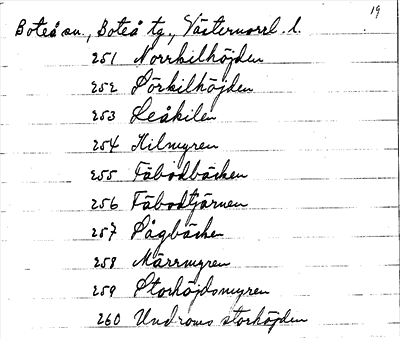 19
Boteå sn., Boteå tg., Västernorrl. l.
251 Norrkilhöjden
252 Sörkilhöjden
253 Leåkilen
254 Kilmyren
255 Fäbodbäcken
256 Fäbodtjärnen
257 Sågbäcken
258 Märrmyren
259 Storhöjdsmyren
260 Undroms storhöjden